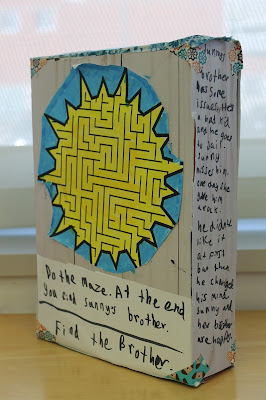 Do the maze. At the end
you end sunnys brother.
Find the Brother.
Sunnys
brother
has some
issues, hes
a bad kid
and he goes
to Jail.
Sunny
misses him.
one day she
gave him
a
he didnt
like it
at first
but then
he changed
his mind.
sunny and
her brother
are happy.